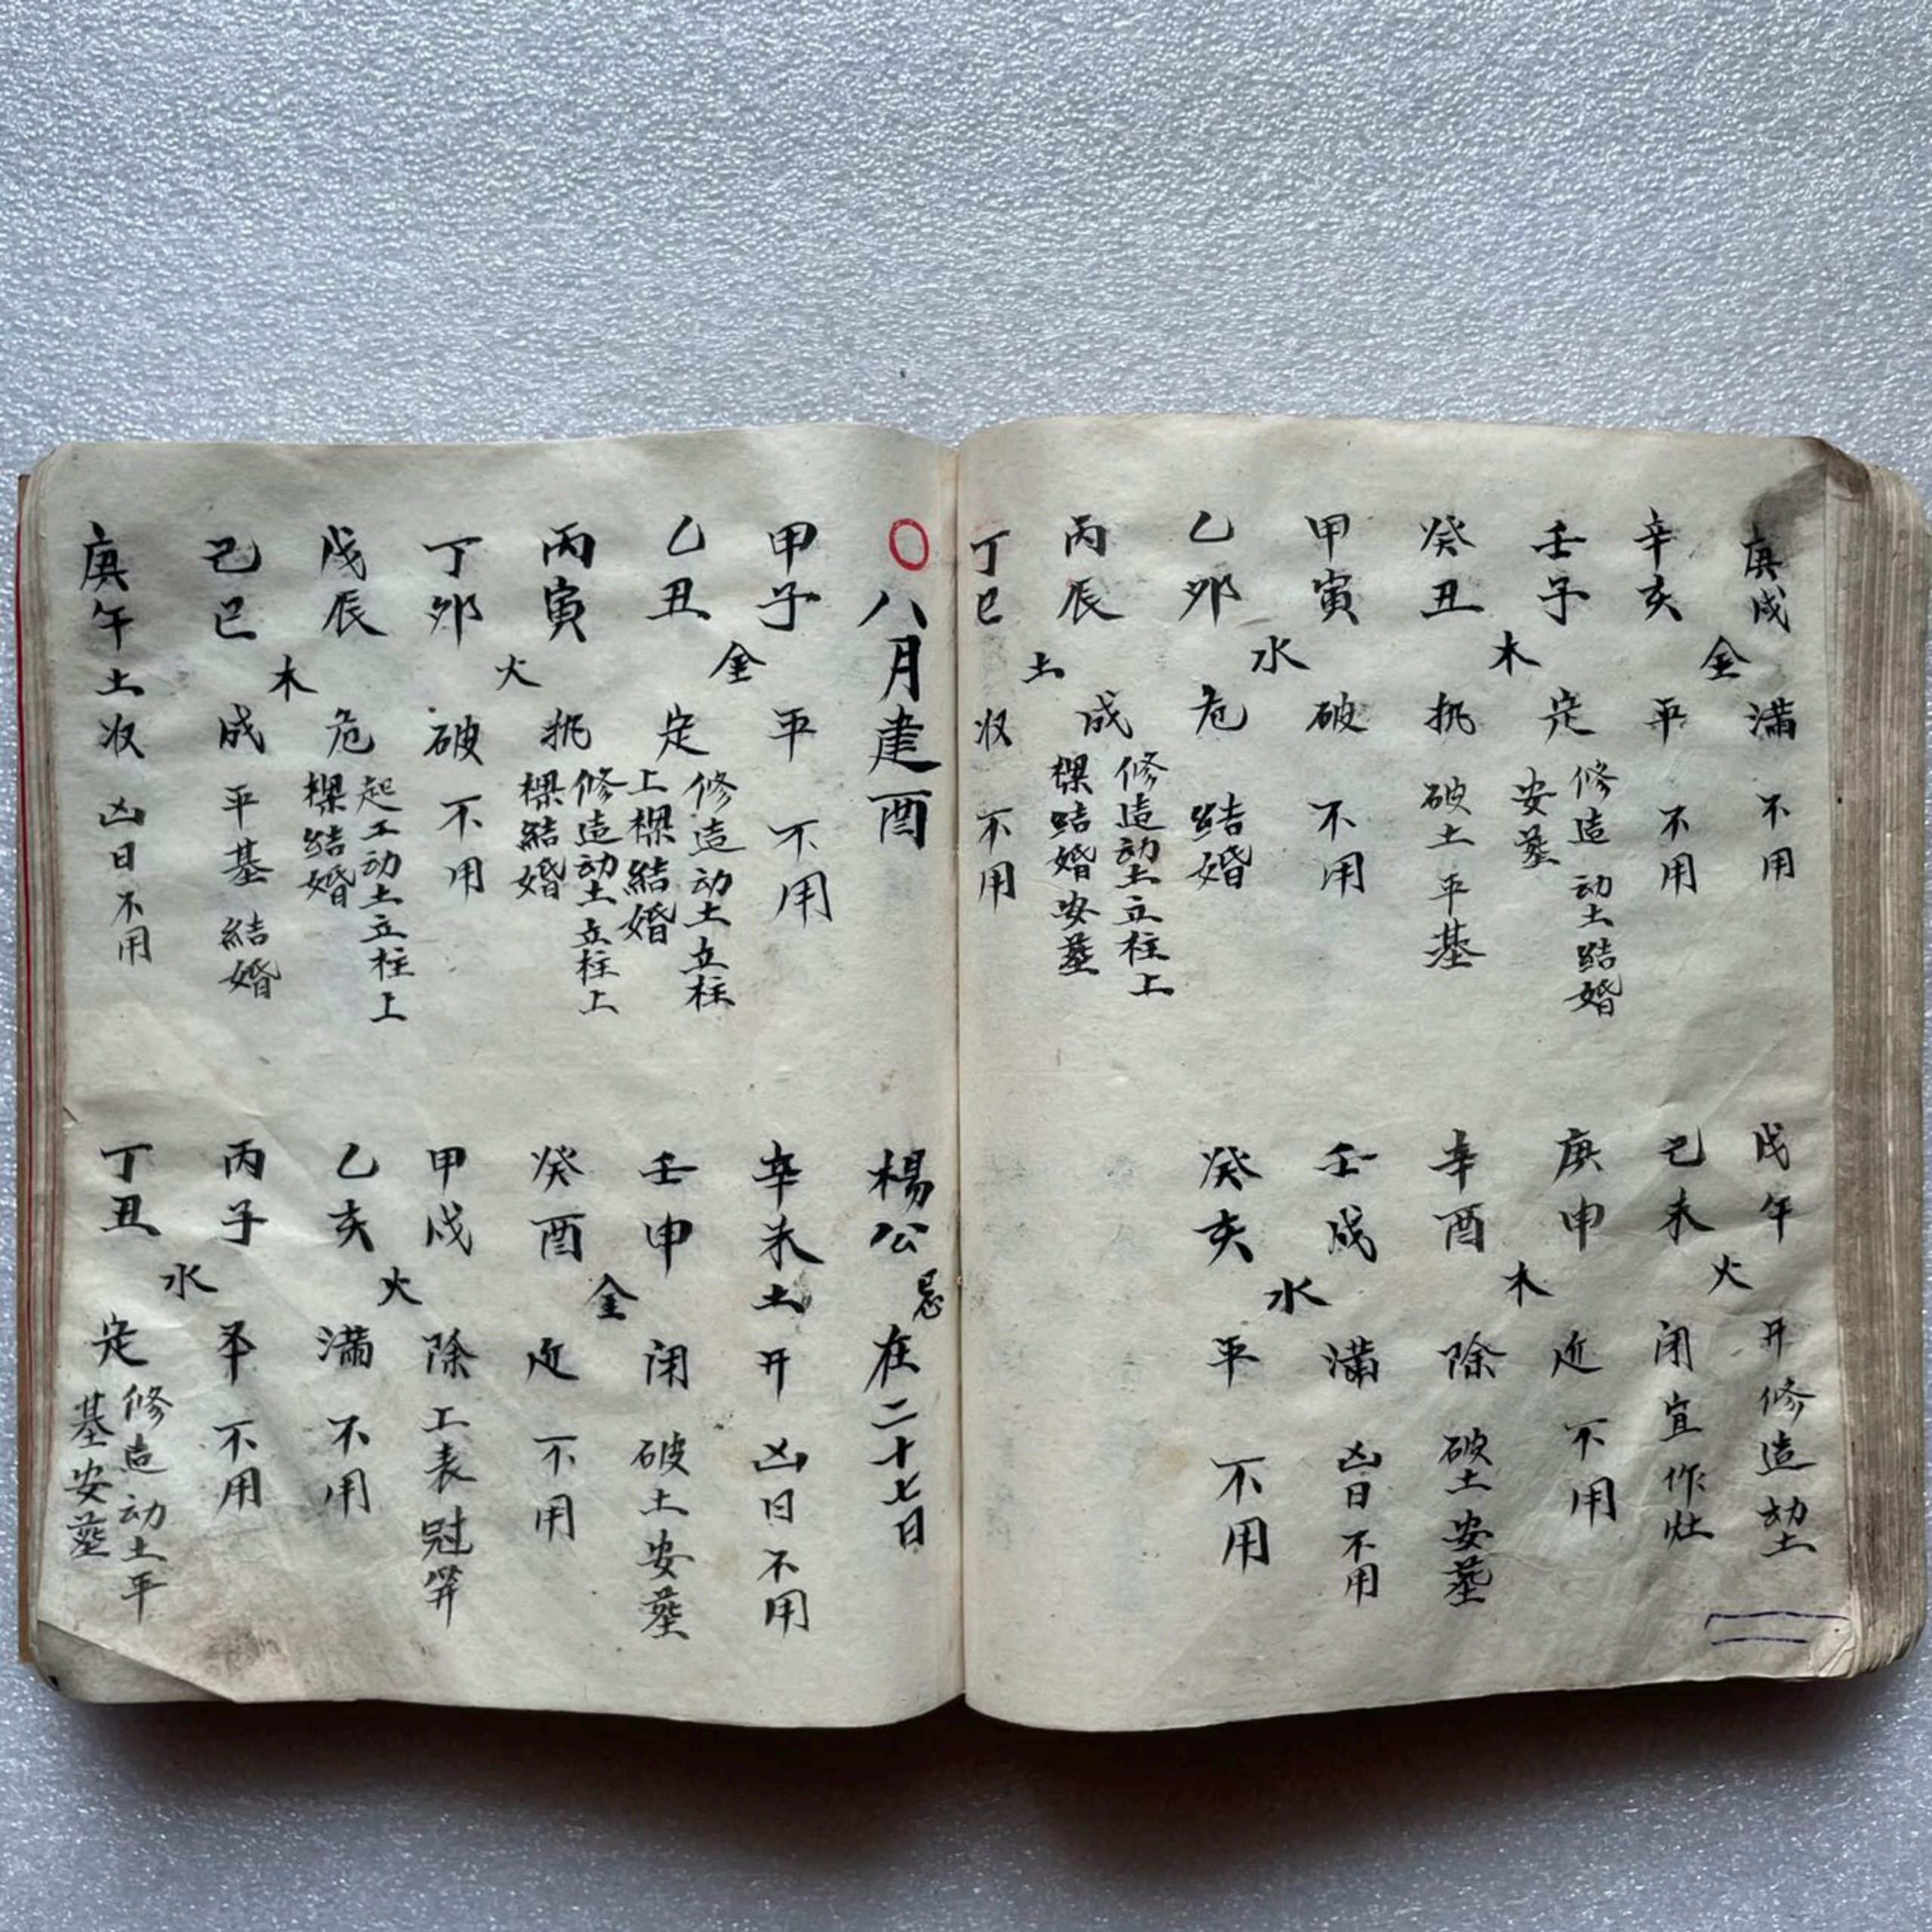 庚戌 金 满 不用
辛亥 平 不用
壬子 木 定 修造动土結婚
安墓
癸丑 执 破土平基
甲寅 水 破 不用
乙卯 危 結婚
丙辰 土 成 修造动土立柱上
樑結婚安墓
丁巳 收 不用
戊午 火 开 修造动土
己未 闭 宜作灶
庚申 木 建 不用
辛酉 除 破土安墓
壬戌 水 满 凶日不用
癸亥 平 不用
〇八月建酉
楊公忌在二十七日
甲子 金 平 不用
乙丑 定 修造动土立柱
上樑結婚
丙寅 火 执 修造动土立柱上
樑結婚
丁卯 破 不用
戊辰 木 危 起工动土立柱上
樑結婚
己巳 成 平基結婚
庚午 土 收 凶日不用
辛未 土 开 凶日不用
壬申 金 闭 破土安墓
癸酉 建 不用
甲戌 火 除 上表冠笄
乙亥 满 不用
丙子 水 平 不用
丁丑 定 修造动土平
基安墓